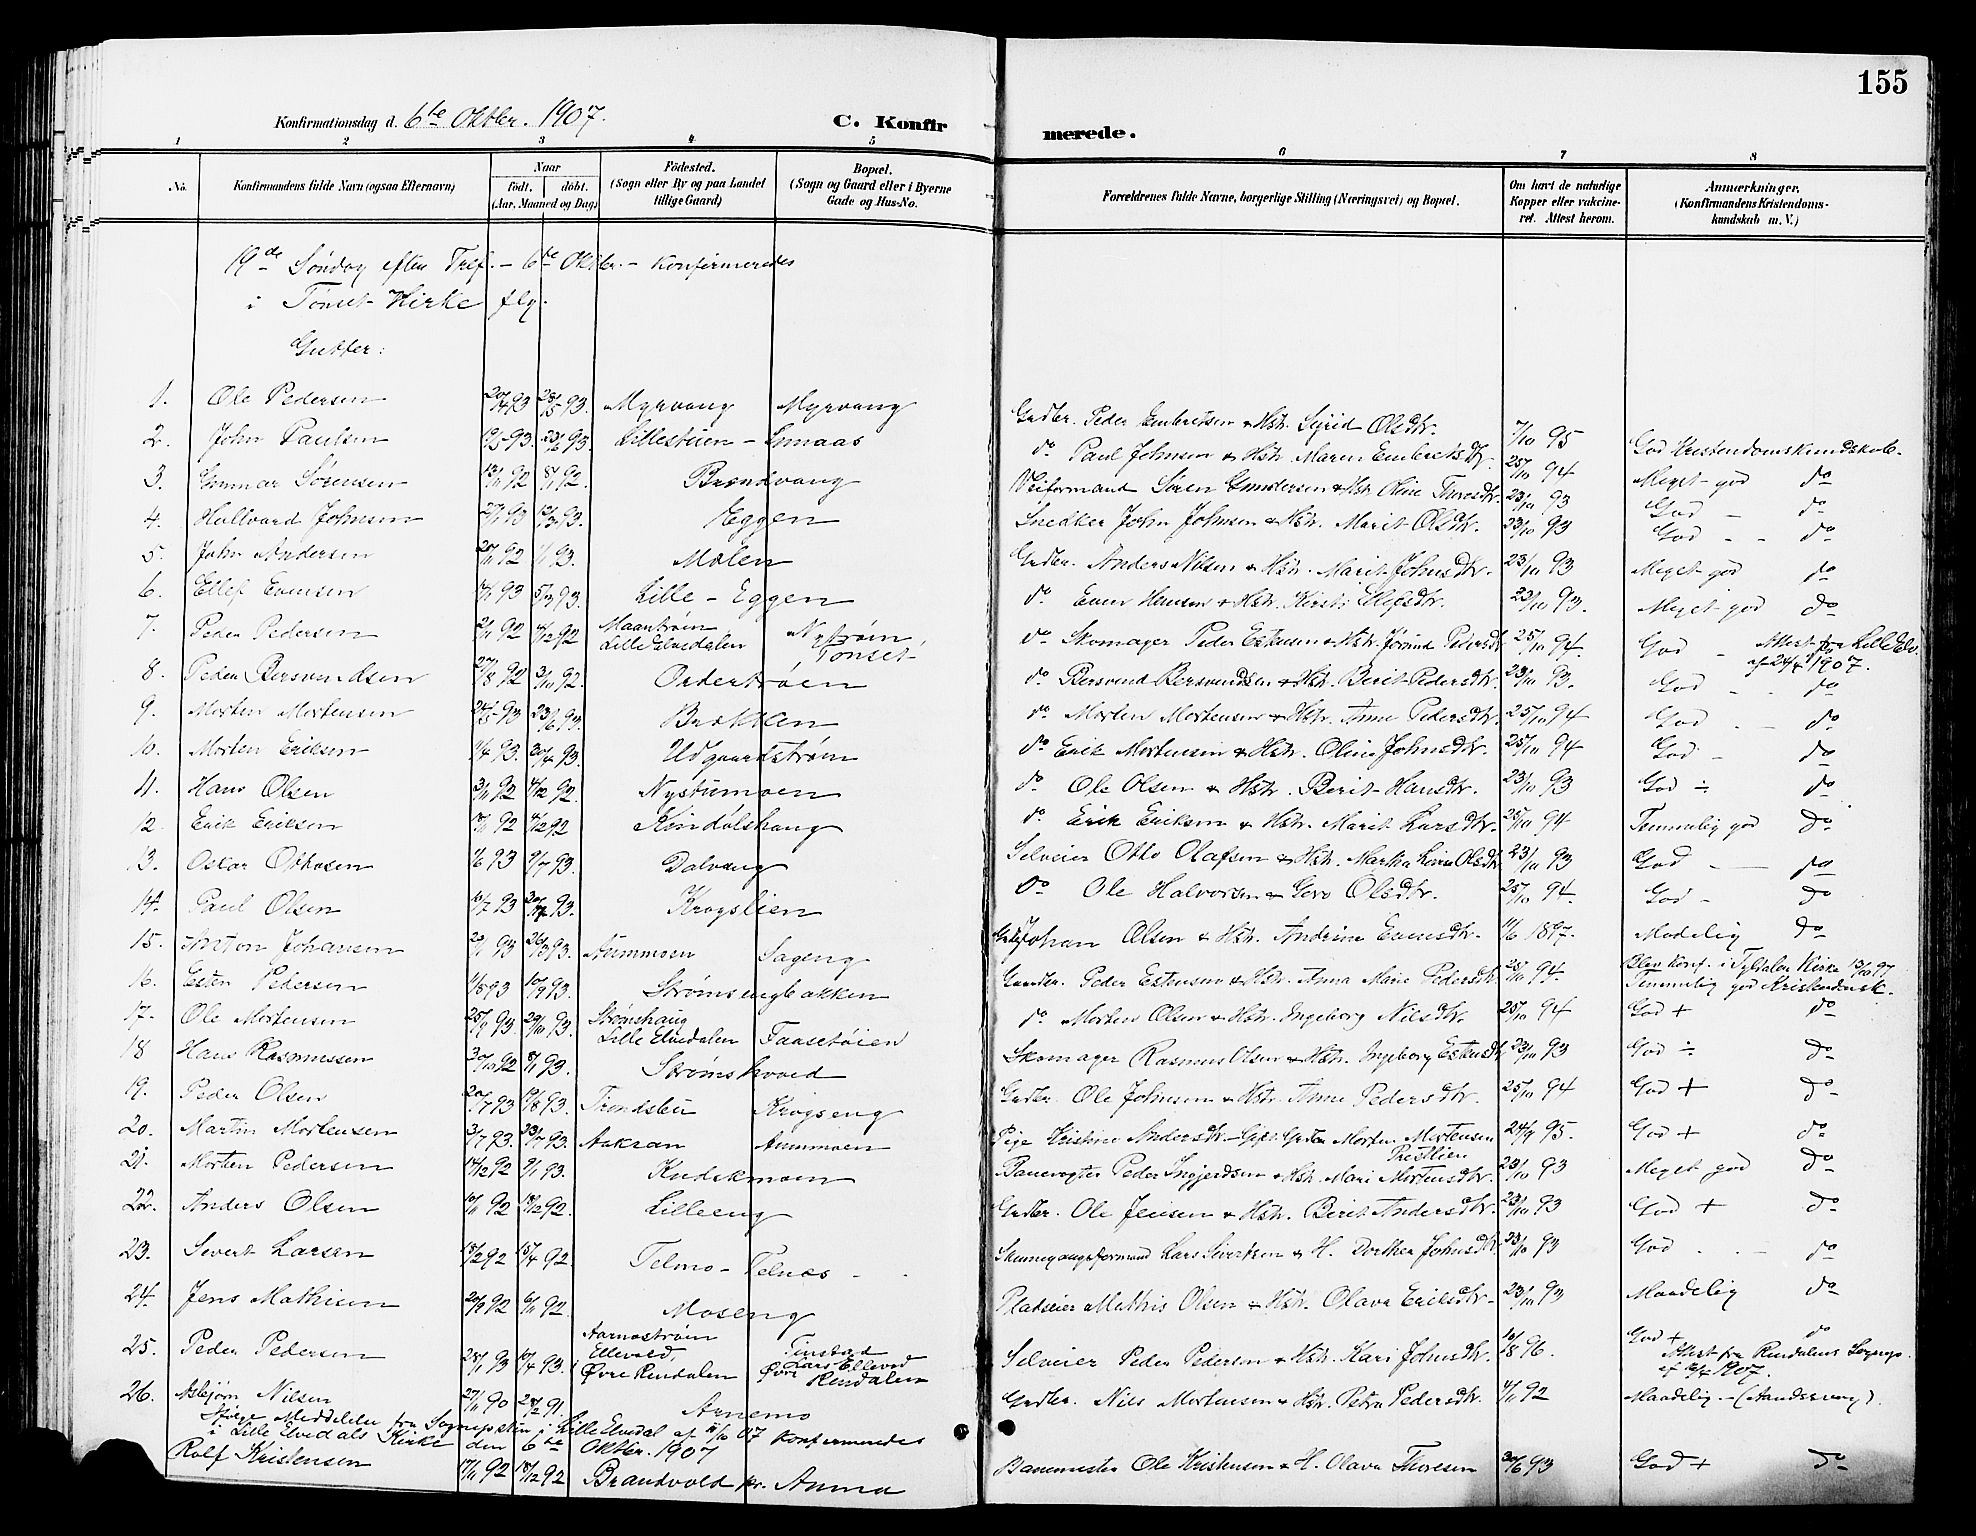 155
Konfirmationsdag d. 6te Oktbr. 1907.
C. Konfirmerede.
1 2 3 4 5 6 7 8
No. Konfirmandens fulde Navn (ogsaa Efternavn) Naar født. døbt. (Aar, Maaned og Dag) Födested. (Sogn eller By og paa Landet tillige Gaard) Bopæl. (Sogn og Gaard eller i Byerne Gade og Hus-No. Forældrenes fulde Navne, borgerlige Stilling (Næringsvei) og Bopæl. Om havt de naturlige Kopper eller vakcineret. Attest herom. Anmærkninger. (Konfirmandens Kristendomskundskab m. V.)
19de Søndag efter Tref. - 6te Oktbr. - Konfirmeredes
i Tønset Kirke flg.
Gutter:
1. Ole Pedersen 20/4 93 28/5 93. Myrvang Myrvang Grdbr. Peder Embretsen & Hstr. Sigrid Olsdtr. 7/10 95 God Kristendomskundskab.
2. John Paulsen 19/5 93. 23/6 93. Lillestuen - Enmaas do Paul Johnsen & Hstr. Maren Embretsdtr. 25/10 94 Meget god do
3. Gunnar Sørensen 12/11 92 8/1 92. Brandvang Veiformand Søren Gundersen & Hstr. Oline Thoresdtr. 23/10 93 God - do
4. Hallvard Johnsen 27/1 93 12/3 93. Eggen Snedker John Johnsen & Hstr. Marit Olsdtr. 23/10 93 God - - do
5. John Andersen 20/11 92 1/1 93. Moen Grdbr. Anders Nilsen & Hstr. Marit Johnsdtr. 23/10 93 Meget god do
6. Ellef Evensen 14/1 93 5/3 93. Lille - Eggen do Even Hansen & Hstr. Kirsti Ellefsdtr. 23/10 93. Meget god do
7. Peder Pedersen 2/11 92 4/12 92 Maantrøen Lille Elvedalen Nytrøen, Tønset do Skomager Peder Estensen & Hstr. Jørund Pedersdtr. 25/10 94. God - Attest fra Lille Elv. af 24/4 1907.
8. Peder Bersvendsen 27/8 92 2/10 92. Ordertrøen do Bersvend Bersvendsen & Hstr. Berit Pedersdtr. 23/10 93. God - - do
9. Morten Mortensen 24/5 93 23/6 93. Brækken do Morten Mortensen & Hstr. Anne Pedersdtr. 25/10 94 God - do
10. Morten Eriksen 1/4 93. 30/4 93. Udgaardstrøen do Erik Mortensen & Hstr. Oline Johnsdtr. 25/10 94 God - do
11. Hans Olsen 3/11 92 4/12 92. Nystumoen do Ole Olsen & Hstr. Berit Hansdtr. 23/10 93 God ÷ do
12. Erik Eriksen 18/11 92 4/12 92 Kindølshaug do Erik Eriksen & Hstr. Marit Larsdtr. 25/10 94 Temmelig god do
13. Oskar Ottosen 1/6 93 9/7 93. Dalvang Selveier Otto Olafsen & Hstr. Martha Lovise Olsdtr. 23/10 93 God - - do
14. Paul Olsen 10/7 93 20/7 93. Krogslien do Ole Halvorsen & Gjero Olsdtr. 25/10 94. God - do
15. Anton Johansen 20/1 93 26/3 93. Aummoen Sageng Grdbr. Johan Olsen & Hstr. Andrine Evensdtr. 11/6 1897. Modelig do
16. Esten Pedersen 11/8 93 10/9 93. Strømsengbakken Grdbr. Peder Estensen & Hstr. Anna Marie Pedersdtr. 25/10 94. Blev konf. i Tyldalen Kirke 13/10 97 Temmelig god Kristendomsk.
17. Ole Mortensen 25/9 93. 29/10 93. Strømshaug do Morten Olsen & Hstr. Ingeborg Nilsdtr. 25/10 94 God + do
18 Hans Rasmussen 30/10 92 8/1 93. Lille Elvedalen Faasetøien Skomager Rasmus Olsen & Hstr. Ingeborg Estensdtr. 23/10 93 God ÷ do
Strømshoved
19. Peder Olsen 20/7 93 19/8 93. Trondsbu Krogseng Grdbr. Ole Johnsen & Hstr. Anne Pedersdtr. 25/10 94 God + do
20. Martin Mortensen 3/7 93. 23/7 93. Aakran Aummoen Pige Kristine Andersdtr. - Gift Grdbr. Morten Mortensen Brætlien 24/9 95. God + do
21. Morten Pedersen 14/12 92 9/1 93. Kudskmoen Banevogter Peder Ingjerdsen & Hstr. Mari Mortensdtr. 23/10 93 Meget god do
22. Anders Olsen 10/11 92 18/12 92. Lilleeng Grdbr. Ole Jensen & Hstr. Berit Andersdtr. 23/10 93 God + do
23. Severt Larsen 18/2 92 15/4 92. Telmo - Telnes - Skinnegangsformand Lars Sivertsen & H. Dorthea Johnsdtr. 23/10 93 God - - do
24. Jens Mathisen 20/9 92 6/11 92. Moseng Pladseier Mathis Olsen & Hstr. Olava Eriksdtr. 23/10 93 Maadelig do
25. Peder Pedersen 28/1 93 10/4 93. Aarnestrøen Ellevold, Øvre Rendalen Finstad Lars Ellevold Øvre Rendalen Selveier Peder Pedersen & Hstr. Kari Johnsdtr. 10/8 96. God + do Attest fra Rendalens Sogneps. af 1907.
26. Asbjørn Nilsen 27/11 90 28/2 91. Arnemo Grdbr. Nils Mortensen & Hstr. Petra Pedersdtr. 4/11 92 Maadelig - (Aandssvag).
Ifølge Meddelelse fra Sognepresten i Lille Elvedal af 11/10 07 konfirmeredes
i Lille Elvedals Kirke den 6te Oktbr. 1907
Rolf Kristensen 17/11 92 18/12 92 Brandvold pr. Auma Banemester Ole Kristensen & H. Olava Thoresen 30/6 93 God + do